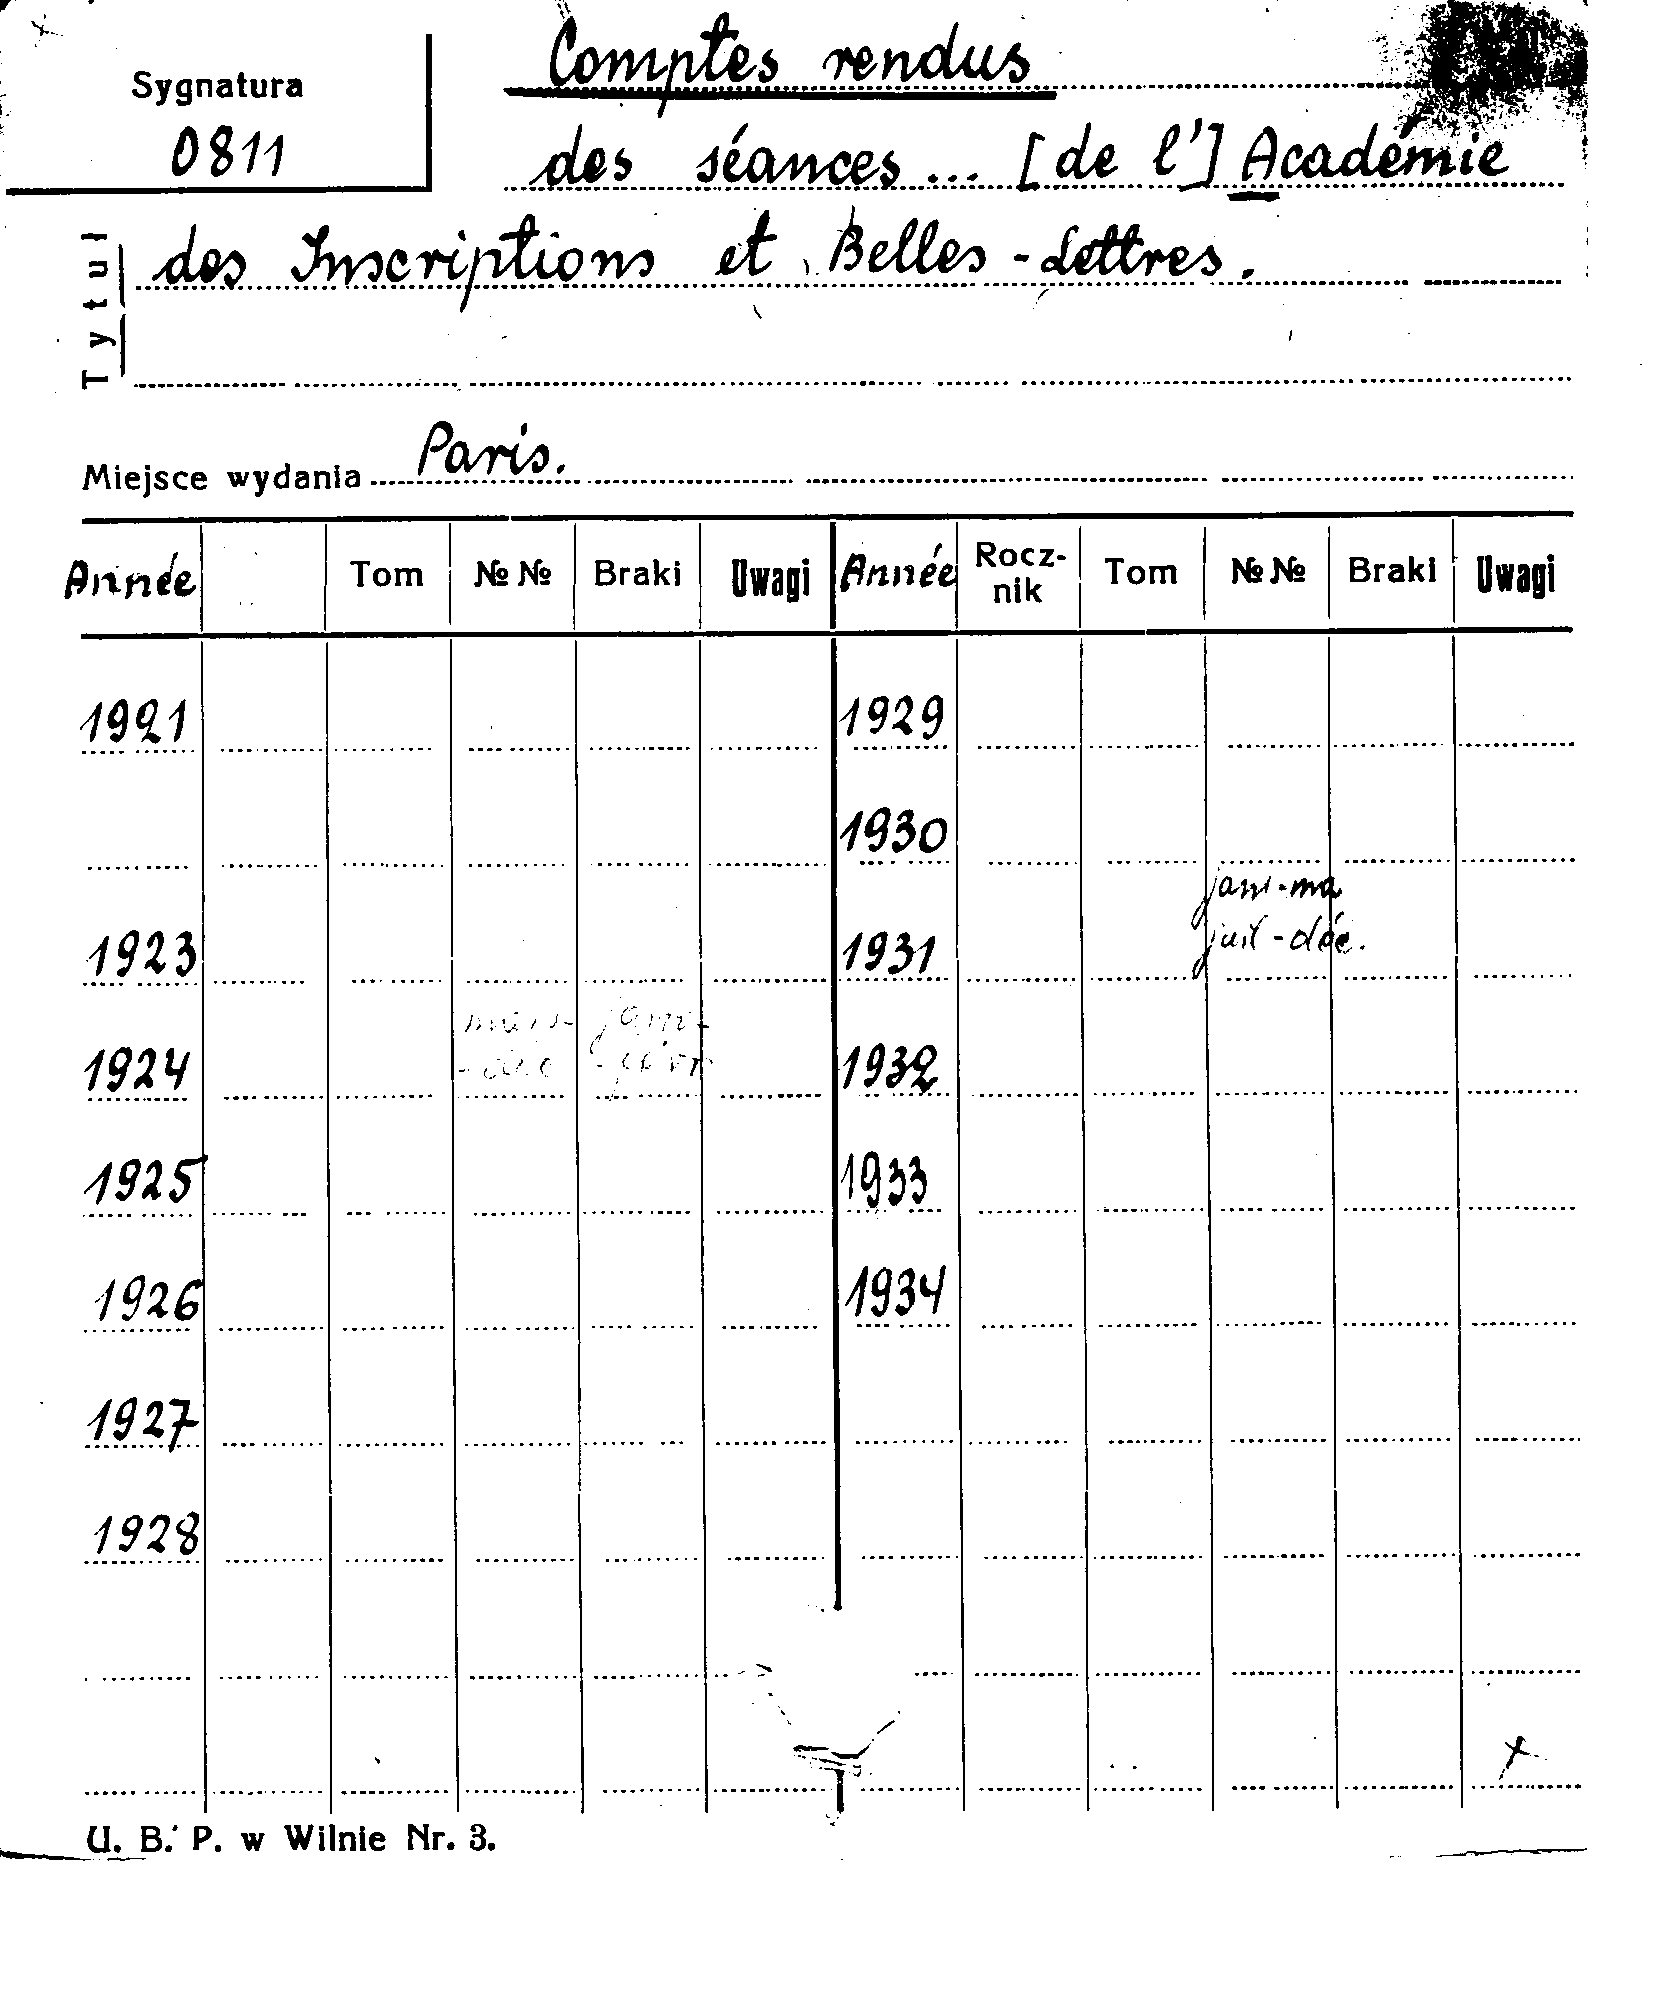 Sygnatura
0811
Comptes rendus
des séances... [de l'] Académie
des Inscriptions et Belles-Lettres.
Tytuł
Miejsce wydania Paris.
Année Tom №№ Braki Uwagi Année Rocz-nik Tom №№ Braki Uwagi
1921 1929
1930
janv-ma
1923 1931 juil-déc.
mars- janv-
1924 -déc -févr 1932
1925 1933
1926 1934
1927
1928
U. B. P. w Wilnie Nr. 3.